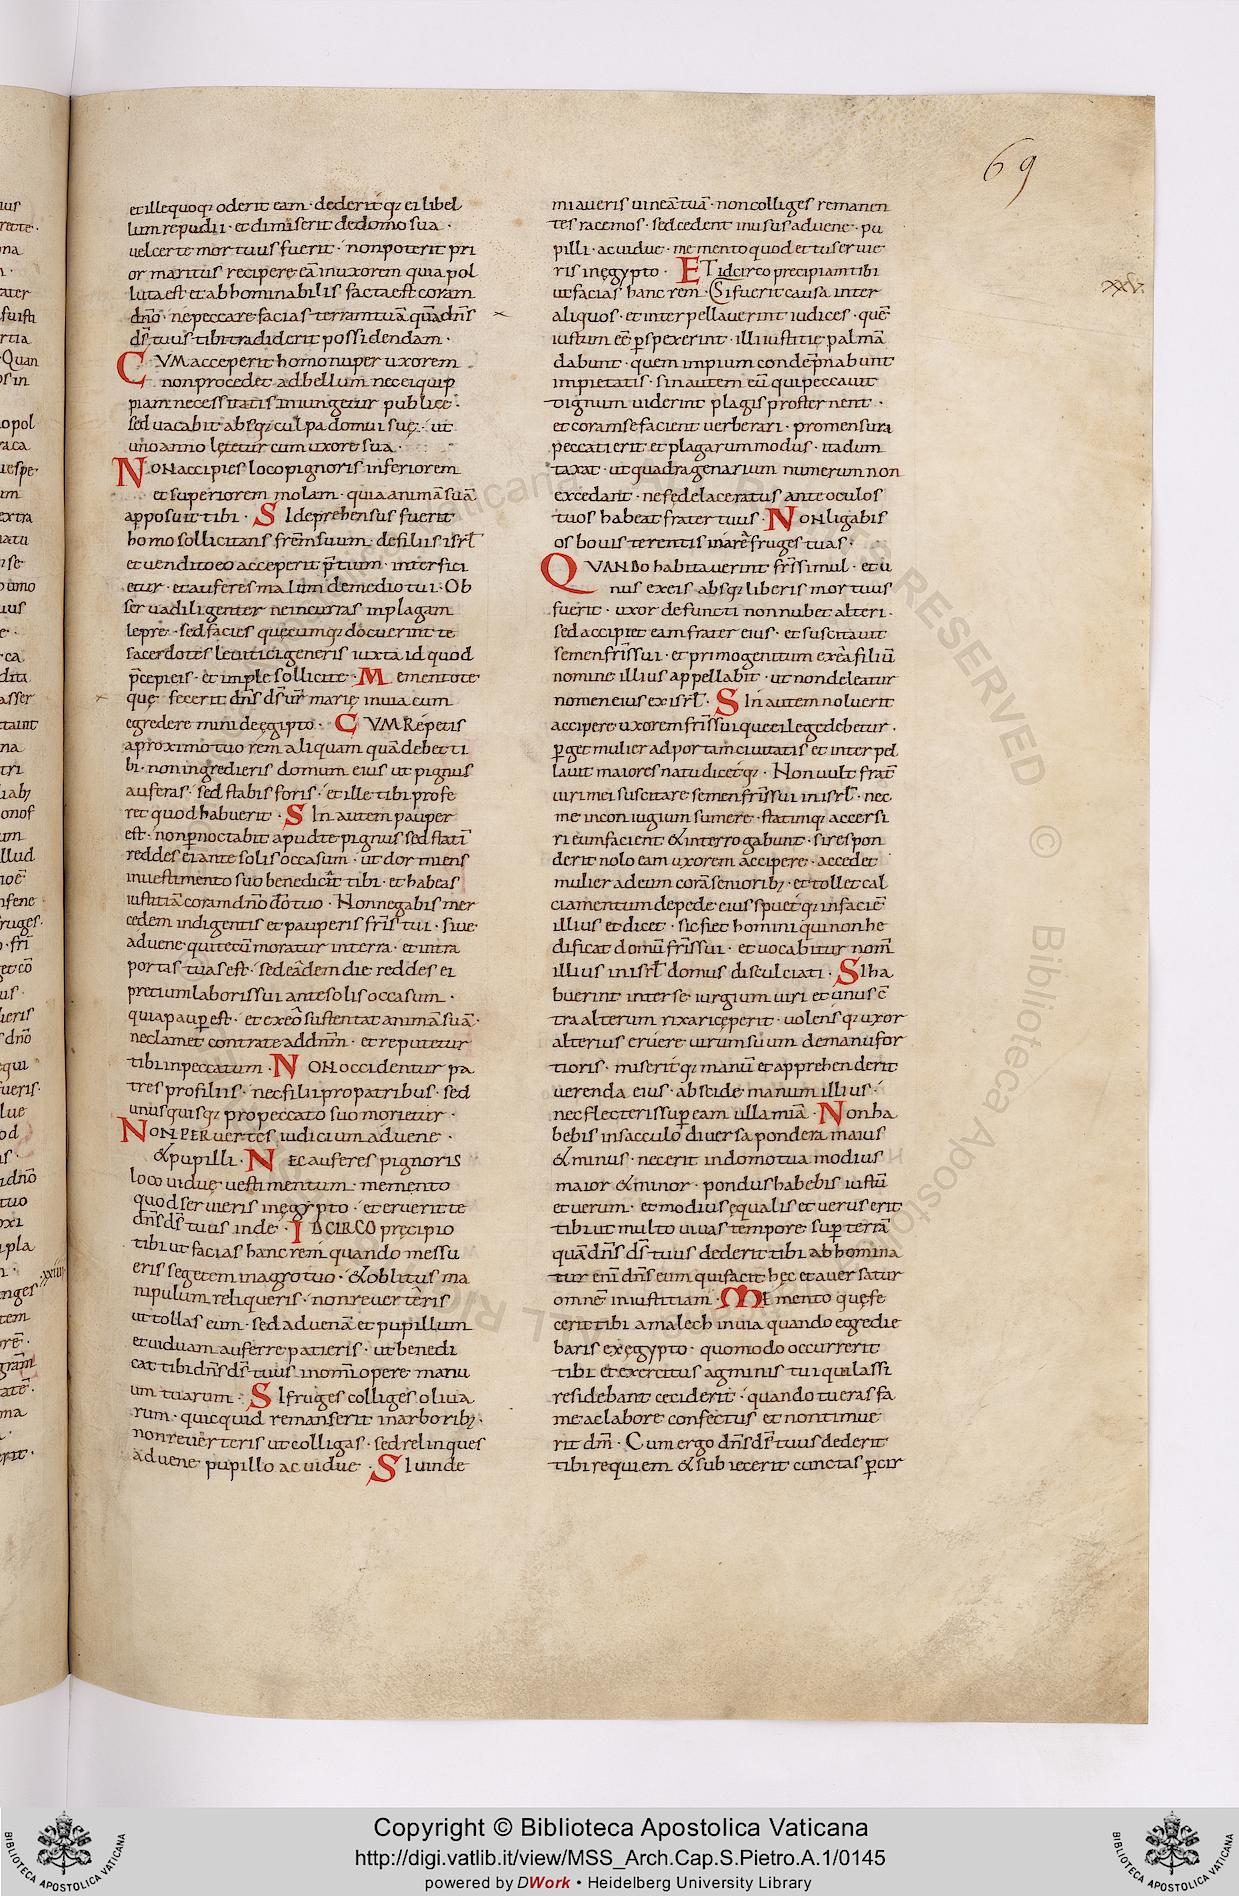 69
et ille quoq; oderit eam · dederitq; ei libel
lum repudii · et dimiserit de domo sua ·
uel certe mortuus fuerit · non poterit pri
or maritus recipere eā in uxorem quia pol
luta est et abhominabilis facta est coram
dn̄o · ne peccare facias terram tuā quā dn̄s
ds̄ tuus tibi tradiderit possidendam ·
CVM acceperit homo nuper uxorem
non procedet ad bellum nec ei quip
piam necessitatis iniungetur publicę ·
sed vacabit absq; culpa domui suę · ut
uno anno lętetur cum uxore sua ·
NON accipies loco pignoris inferiorem
et superiorem molam · quia animā suā
apposuit tibi · SI deprehensus fuerit
homo sollicitans frēm suum de filiis isrl̄
et uendito eo acceperit p̄tium · interfici
etur · et auferes malum de medio tui · Ob
serua diligenter ne incurras in plagam
leprę · sed facies quęcumq; docuerint te
sacerdotes leuitici generis iuxta id quod
p̄cepi eis · et imple sollicite · Mementote
quę fecerit dn̄s ds̄ ur̄ marię in uia cum
egredere mini de ęgipto · CVM Repetis
a proximo tuo rem aliquam quā debet ti
bi · non ingredieris domum eius ut pignus
auferas · sed stabis foris · et ille tibi profe
ret quod habuerit · SIn autem pauper
est · non p̄noctabit apud te pignus sed statī
reddes ei ante solis occasum · ut dormiens
in uestimento suo benedicat tibi · et habeas
iustitiā coram dn̄o dō tuo · Non negabis mer
cedem indigentis et pauperis fr̄is tui · siue
aduenę qui tecū moratur in terra · et intra
portas tuas est · sed eādem die reddes ei
pretium laboris sui ante solis occasum ·
quia paup est · et ex eo sustentat animā suā ·
ne clamet contra te ad dnm̄ · et reputetur
tibi in peccatum · NON occidentur pa
tres pro filiis · nec filii pro patribus · sed
unusquisq; pro peccato suo morietur ·
NON PERuertes iudicium aduenę ·
& pupilli · NEc auferes pignoris
loco uiduę uestimentum · memento
quod seruieris in ęgypto · et eruerit te
dn̄s ds̄ tuus inde · IDCIRCO pręcipio
tibi ut facias hanc rem quando messu
eris segetem in agro tuo · & oblitus ma
nipulum reliqueris · non reuerteris
ut tollas eum · sed aduenā et pupillum
et uiduam auferre patieris · ut benedi
cat tibi dn̄s ds̄ tuus in om̄i opere manu
um tuarum · SI fruges colliges oliua
rum · quicquid remanserit in arborib; ·
non reuerteris ut colligas · sed relinques
aduenę pupillo ac uiduę · SI uinde
miaueris uineā tuā · non colliges remanen
tes racemos · sed cedent in usus aduenę · pu
pilli · ac uiduę · memento quod et tu seruie
ris in ęgypto · ET idcirco precipiam tibi
ut facias hanc rem · Si fuerit causa inter
aliquos · et interpellauerint iudices · quē
iustum eē pspexerint · illi iustitię palmā
dabunt · quem impium condēpnabunt
impietatis · sin autem eū qui peccauit
dignum uiderint plagis prosternent ·
et coram se facient uerberari · pro mensura
peccati erit et plagarum modus · ita dum
taxat · ut quadragenarium numerum non
excedant · ne fęde laceratus ante oculos
tuos habeat frater tuus · NON ligabis
os bouis terentis in area fruges tuas ·
QVANDo habitauerint fr̄s simul · et u
nus ex eis absq; liberis mortuus
fuerit · uxor defuncti non nubet alteri ·
sed accipiet eam frater eius · et suscitauit
semen fr̄is sui · et primogenitum ex eā filiū
nomine illius appellabit · ut non deleatur
nomen eius ex isrl̄ · SIn autem noluerit
accipere uxorem fr̄is sui que ei lege debetur ·
pget mulier ad portam ciuitatis et interpel
lauit maiores natu dicetq; · Non uult frat̄
uiri mei suscitare semen fr̄is sui in isrl̄ · nec
me in coniugium sumere · statimq; accersi
ri eum facient & interrogabunt · si respon
derit nolo eam uxorem accipere · accedet
mulier ad eum corā seniorib; · et tollet cal
ciamentum de pede eius spuetq; in faciē
illius et dicet · sic fiet homini qui non hę
dificat domū fr̄is sui · et uocabitur nom̄
illius in isrl̄ domus disculciati · SI ha
buerint inter se iurgium uiri et unus cō
tra alterum rixari cęperit · uolensq; uxor
alterius eruere uirum suum de manu for
tioris · miseritq; manū et apprehenderit
uerenda eius · abscide manum illius ·
nec flecteris sup eam ulla mīa · Non ha
bebis in sacculo diuersa pondera maius
& minus · nec erit in domo tua modius
maior & minor · pondus habebis iustū
et uerum · et modius equalis et uerus erit
tibi ut multo uiuas tempore · sup terrā
quā dn̄s ds̄ tuus dederit tibi abhomina
tur enī dn̄s eum qui facit hęc et auersatur
omnē iniustitiam · MEmento quę fe
cerit tibi amalech in uia quando egredie
baris ex ęgypto · quomodo occurrerit
tibi et exercitus agminis tui qui lassi
residebant ceciderit · quando tu eras fa
me ac labore confectus et non timue
rit dm̄ · Cum ergo dn̄s ds̄ tuus dederit
tibi requiem & subiecerit cunctas p cir
xxv
xxiiii
Copyright © Biblioteca Apostolica Vaticana
http://digi.vatlib.it/view/MSS_Arch.Cap.S.Pietro.A.1/0145
powered by DWork • Heidelberg University Library
BIBLIOTECA APOSTOLICA VATICANA
BIBLIOTECA APOSTOLICA VATICANA